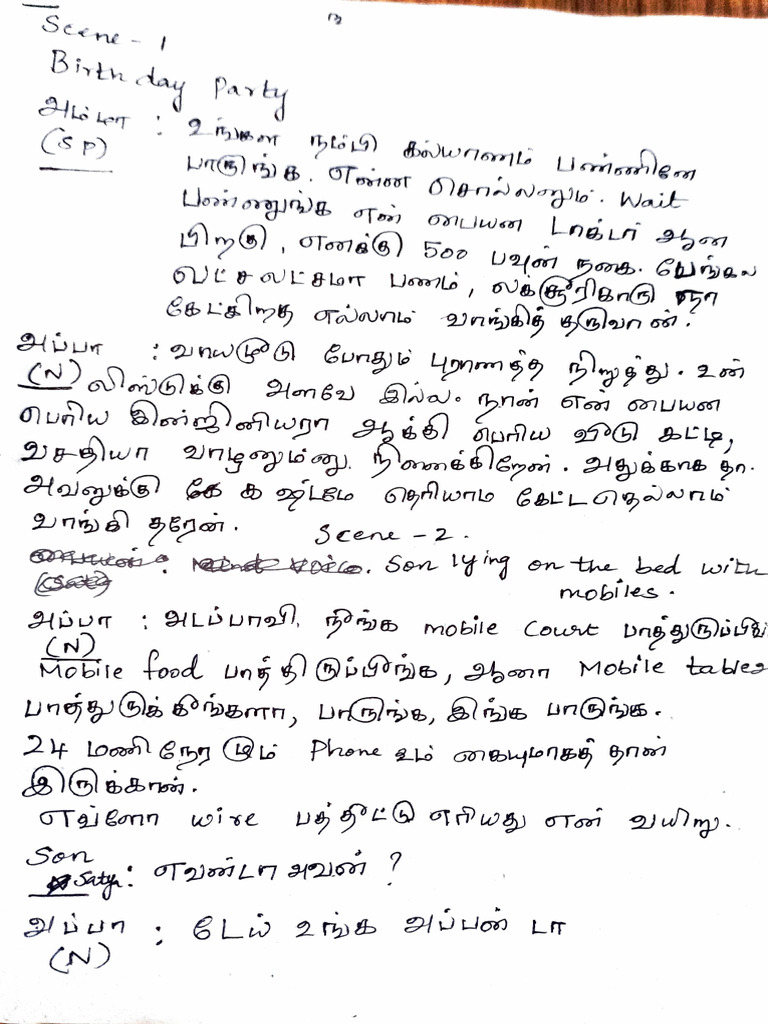 Scene - 1
Birthday Party
அம்மா : உங்கள நம்பி கல்யாணம் பண்ணினே
(SP) பாருங்க. என்ன சொல்லனும். Wait
பண்ணுங்க என் பையன டாக்டர் ஆன
பிறகு, எனக்கு 500 பவுன் நகை.
லட்சலட்சமா பணம், லக்சூரிகாரு நா
கேட்கிறத எல்லாம் வாங்கித் தருவான்.
அப்பா : வாயமூடு போதும் புராணத்த நிறுத்து. உன்
(N) லிஸ்டுக்கு அளவே இல்ல. நான் என் பையன
பெரிய இன்ஜினியரா ஆக்கி பெரிய வீடு கட்டி,
வசதியா வாழனும்னு நினைக்கிறேன். அதுக்காக தா.
அவனுக்கு கஷ்டமே தெரியாம கேட்டதெல்லாம்
வாங்கி தரேன். Scene - 2.
Son lying on the bed with
mobiles.
அப்பா : அடப்பாவி. நீங்க mobile Court
(N)
Mobile food பாத்திருப்பீங்க, ஆனா Mobile tables
பாத்துருக்கீங்களா, பாருங்க, இங்க பாருங்க.
24 மணிநேரமும் Phone உம் கையுமாகத் தான்
இருக்கான்.
எவ்ளோ wire பத்திட்டு எரியது என் வயிறு.
Son
Satya: எவண்டா அவன் ?
அப்பா : டேய் உங்க அப்பன் டா
(N)